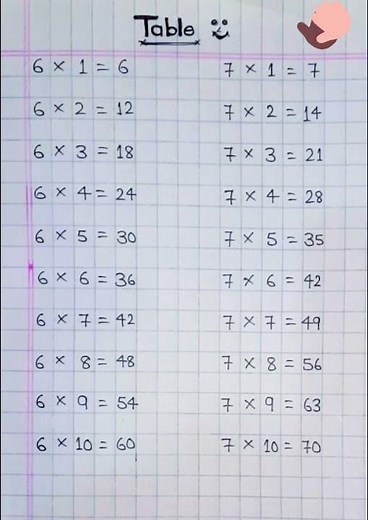 Table
6 × 1 = 6
6 × 2 = 12
6 × 3 = 18
6 × 4 = 24
6 × 5 = 30
6 × 6 = 36
6 × 7 = 42
6 × 8 = 48
6 × 9 = 54
6 × 10 = 60
7 × 1 = 7
7 × 2 = 14
7 × 3 = 21
7 × 4 = 28
7 × 5 = 35
7 × 6 = 42
7 × 7 = 49
7 × 8 = 56
7 × 9 = 63
7 × 10 = 70